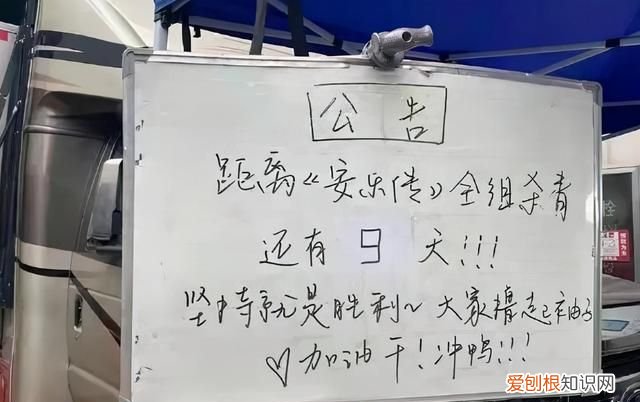 公告
距离《安乐传》全组杀青
还有 9 天!!!
坚持就是胜利~ 大家撸起袖子
♡加油干!冲鸭!!!
爱刨根知识网
www.baogenzhishi.com